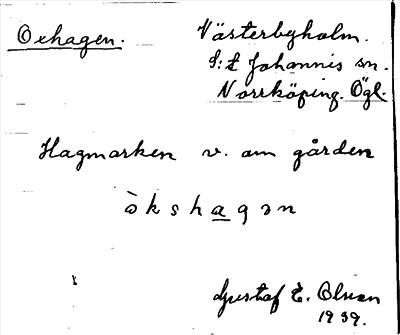 Oxhagen.
Västerbyholm.
S:t Johannis sn.
Norrköping. Ögl.
Hagmarken v. om gården
òkshagən
Gustaf E. Olson
1939.